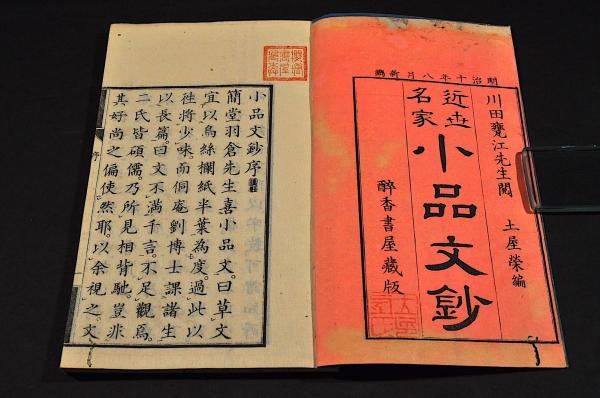 明治十年八月新鐫
川田甕江先生閲
土屋榮編
近世名家
小品文鈔
醉香書屋藏版
小品文鈔序
簡堂羽倉先生喜小品文曰草文
宜以烏絲欄紙半葉為度過此以
往將少味而侗庵劉博士課諸生
以長篇曰文不滿千言不足觀焉
二氏皆碩儒乃所見相背馳豈非
其好尚之偏使然耶以余視之文
序